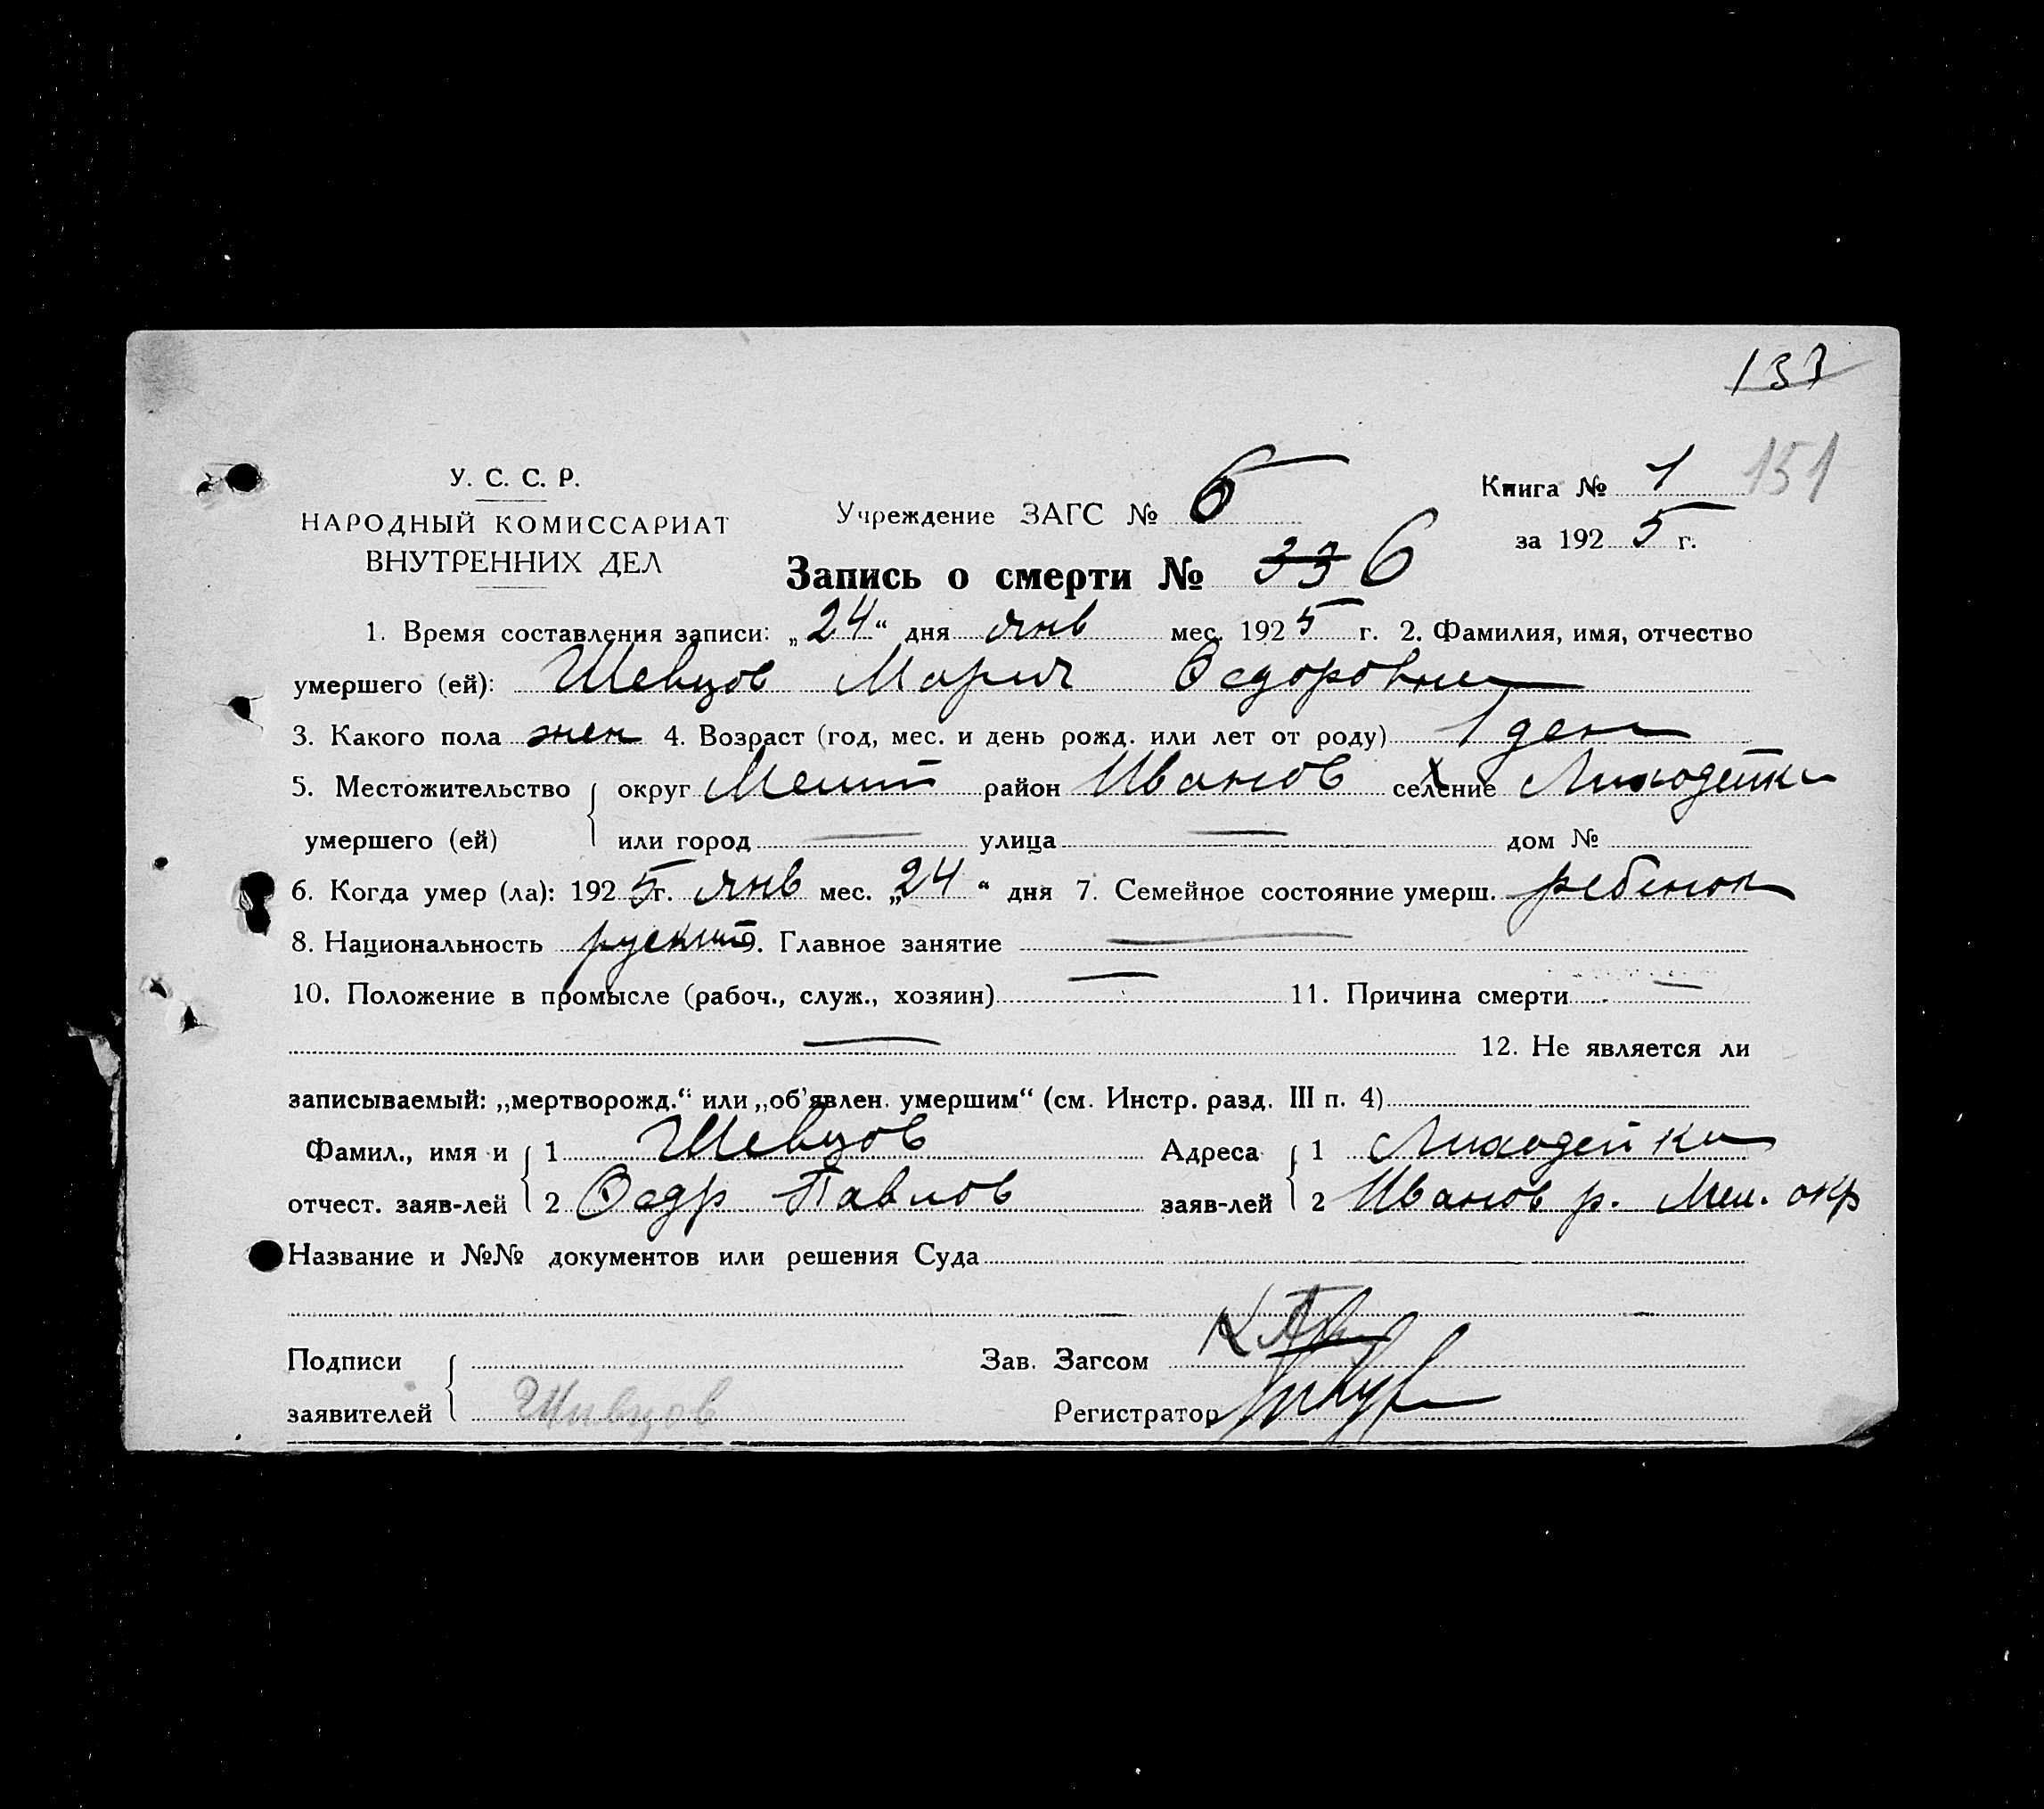 137
У. С. С. Р.
НАРОДНЫЙ КОМИССАРИАТ
ВНУТРЕННИХ ДЕЛ
Учреждение ЗАГС № 6
Книга № 1 151
за 1925 г.
Запись о смерти № 33 6
1. Время составления записи: „24“ дня янв мес. 1925 г. 2. Фамилия, имя, отчество
умершего (ей): Шевцов Мария Федоровна
3. Какого пола жен 4. Возраст (год, мес. и день рожд. или лет от роду) 1 ден
5. Местожительство округ Мелит район Иванов селение х Лиходейки
умершего (ей) или город — улица — дом №
6. Когда умер (ла): 1925 г. янв мес. „24“ дня 7. Семейное состояние умерш. ребенок
8. Национальность руский 9. Главное занятие —
10. Положение в промысле (рабоч., служ., хозяин) — 11. Причина смерти —
— 12. Не является ли
записываемый: „мертворожд.“ или „об'явлен. умершим“ (см. Инстр. разд. III п. 4)
Фамил., имя и 1 Шевцов Адреса 1 Лиходейки
отчест. заяв-лей 2 Федр Павлов заяв-лей 2 Иванов р. Мел. окр
Название и №№ документов или решения Суда
Подписи Зав. Загсом
заявителей Шивцов Регистратор